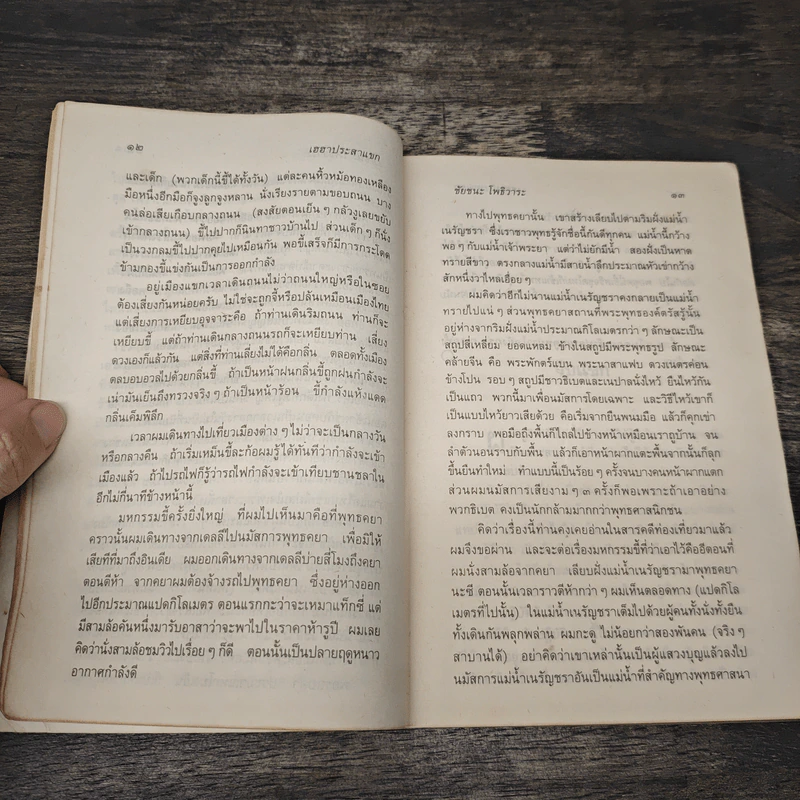 ๑๒ เฮฮาประสาแขก
และเด็ก (พวกเด็กนี้ขี้ได้ทั้งวัน) แต่ละคนหิ้วหม้อทองเหลือง
มือหนึ่งอีกมือก็จูงลูกจูงหลาน นั่งเรียงรายตามขอบถนน บาง
คนล่อเสียเกือบกลางถนน (สงสัยตอนเย็น ๆ กลัวงูเลยขยับ
เข้ากลางถนน) ขี้ไปปากก็นินทาชาวบ้านไป ส่วนเด็ก ๆ ก็นั่ง
เป็นวงกลมขี้ไปปากคุยไปเหมือนกัน พอขี้เสร็จก็มีการกระโดด
ข้ามกองขี้แข่งกันเป็นการออกกำลัง
อยู่เมืองแขกเวลาเดินถนนไม่ว่าถนนใหญ่หรือในซอย
ต้องเสี่ยงกันหน่อยครับ ไม่ใช่จะถูกจี้หรือปล้นเหมือนเมืองไทย
แต่เสี่ยงการเหยียบอุจจาระคือ ถ้าท่านเดินริมถนน ท่านก็จะ
เหยียบขี้ แต่ถ้าท่านเดินกลางถนนรถก็จะเหยียบท่าน เสี่ยง
ดวงเองก็แล้วกัน แต่สิ่งที่ท่านเลี่ยงไม่ได้คือกลิ่น ตลอดทั้งเมือง
ตลบอบอวลไปด้วยกลิ่นขี้ ถ้าเป็นหน้าฝนกลิ่นขี้ถูกฝนกำลังจะ
เน่ามันเย็นถึงทรวงจริง ๆ ถ้าเป็นหน้าร้อน ขี้กำลังแห้งแดด
กลิ่นเค็มพิลึก
เวลาผมเดินทางไปเที่ยวเมืองต่าง ๆ ไม่ว่าจะเป็นกลางวัน
หรือกลางคืน ถ้าเริ่มเหม็นขี้ละก้อผมรู้ได้ทันทีว่ากำลังจะเข้า
เมืองแล้ว ถ้าไปรถไฟก็รู้ว่ารถไฟกำลังจะเข้าเทียบชานชลาใน
อีกไม่กี่นาทีข้างหน้านี้
มหกรรมขี้ครั้งยิ่งใหญ่ ที่ผมไปเห็นมาคือที่พุทธคยา
คราวนั้นผมเดินทางจากเดลลีไปนมัสการพุทธคยา เพื่อมิให้
เสียทีที่มาถึงอินเดีย ผมออกเดินทางจากเดลลีบ่ายสี่โมงถึงคยา
ตอนตีห้า จากคยาผมต้องจ้างรถไปพุทธคยา ซึ่งอยู่ห่างออก
ไปอีกประมาณแปดกิโลเมตร ตอนแรกกะว่าจะเหมาแท็กซี่ แต่
มีสามล้อคันหนึ่งมารับอาสาว่าจะพาไปในราคาห้ารูปี ผมเลย
คิดว่านั่งสามล้อชมวิวไปเรื่อย ๆ ก็ดี ตอนนั้นเป็นปลายฤดูหนาว
อากาศกำลังดี
ชัยชนะ โพธิวาระ ๑๓
ทางไปพุทธคยานั้น เขาสร้างเลียบไปตามริมฝั่งแม่น้ำ
เนรัญชรา ซึ่งเราชาวพุทธรู้จักชื่อนี้กันดีทุกคน แม่น้ำนี้กว้าง
พอ ๆ กับแม่น้ำเจ้าพระยา แต่ว่าไม่ยักมีน้ำ สองฝั่งเป็นหาด
ทรายสีขาว ตรงกลางแม่น้ำมีสายน้ำลึกประมาณหัวเข่ากว้าง
สักหนึ่งวาไหลเอื่อย ๆ
ผมคิดว่าอีกไม่นานแม่น้ำเนรัญชราคงกลายเป็นแม่น้ำ
ทรายไปแน่ ๆ ส่วนพุทธคยาสถานที่พระพุทธองค์ตรัสรู้นั้น
อยู่ห่างจากริมฝั่งแม่น้ำประมาณกิโลเมตรกว่า ๆ ลักษณะเป็น
สถูปสี่เหลี่ยม ยอดแหลม ข้างในสถูปมีพระพุทธรูป ลักษณะ
คล้ายจีน คือ พระพักตร์แบน พระนาสาแฟบ ดวงเนตรค่อน
ข้างโปน รอบ ๆ สถูปมีชาวธิเบตและเนปาลนั่งไหว้ ยืนไหว้กัน
เป็นแถว พวกนี้มาเพื่อนมัสการโดยเฉพาะ และวิธีไหว้เขาก็
เป็นแบบไหว้ยาวเสียด้วย คือเริ่มจากยืนพนมมือ แล้วก็คุกเข่า
ลงกราบ พอมือถึงพื้นก็ไถลไปข้างหน้าเหมือนเราถูบ้าน จน
ลำตัวนอนราบกับพื้น แล้วก็เอาหน้าผากแตะพื้นจากนั้นก็ลุก
ขึ้นยืนทำใหม่ ทำแบบนี้เป็นร้อย ๆ ครั้งจนบางคนหน้าผากแตก
ส่วนผมนมัสการเสียงาม ๆ ๓ ครั้งก็พอเพราะถ้าเอาอย่าง
พวกธิเบต คงเป็นนักกล้ามมากกว่าพุทธศาสนิกชน
คิดว่าเรื่องนี้ท่านคงเคยอ่านในสารคดีท่องเที่ยวมาแล้ว
ผมจึงขอผ่าน และจะต่อเรื่องมหกรรมขี้ที่ว่าเอาไว้คืออีตอนที่
ผมนั่งสามล้อจากคยา เลียบฝั่งแม่น้ำเนรัญชรามาพุทธคยา
นะซี ตอนนั้นเวลาราวตีห้ากว่า ๆ ผมเห็นตลอดทาง (แปดกิโล
เมตรที่ไปนั้น) ในแม่น้ำเนรัญชราเต็มไปด้วยผู้คนทั้งนั่งทั้งยืน
ทั้งเดินกันพลุกพล่าน ผมกะดู ไม่น้อยกว่าสองพันคน (จริง ๆ
สาบานได้) อย่าคิดว่าเขาเหล่านั้นเป็นผู้แสวงบุญแล้วลงไป
นมัสการแม่น้ำเนรัญชราอันเป็นแม่น้ำที่สำคัญทางพุทธศาสนา